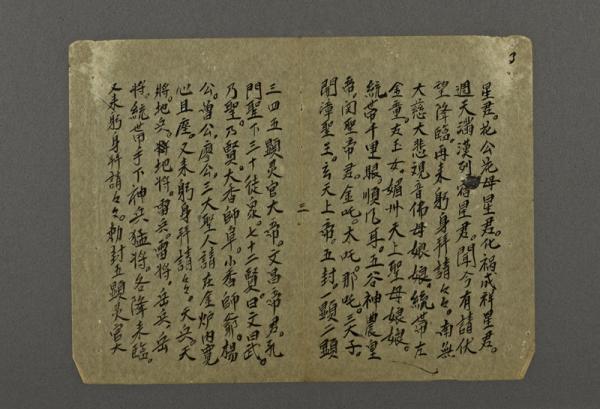 星君。花公花母星君。化禍成祥星君。
週天滿漢列宿星君。聞今有請伏
望降臨。再来躬身拜請々々。南無
大慈大悲观音佛母娘娘。統帶左
金童右玉女。媚州天上聖母娘娘。
統帶千里眼順風耳。五谷神農皇
帝。関聖帝君。金吒。木吒。那吒。三天子。
開漳聖王。玄天上帝。五封一顕二顕
三
三四五顕灵官大帝。文昌帝君。孔
門聖下三千徒衆。七十二賢曰文曰武
乃聖乃賢。大香師阜。小香師俞。楊
公。曽公。廖公。三大聖人請在金炉内寬
心且座。又来躬身拜請々々。天兵天
將。地兵地將。雷兵雷將。岳兵岳
將。統帶手下神兵猛將。各降来臨。
又来躬身拜請々々。勅封五顕灵官大
3